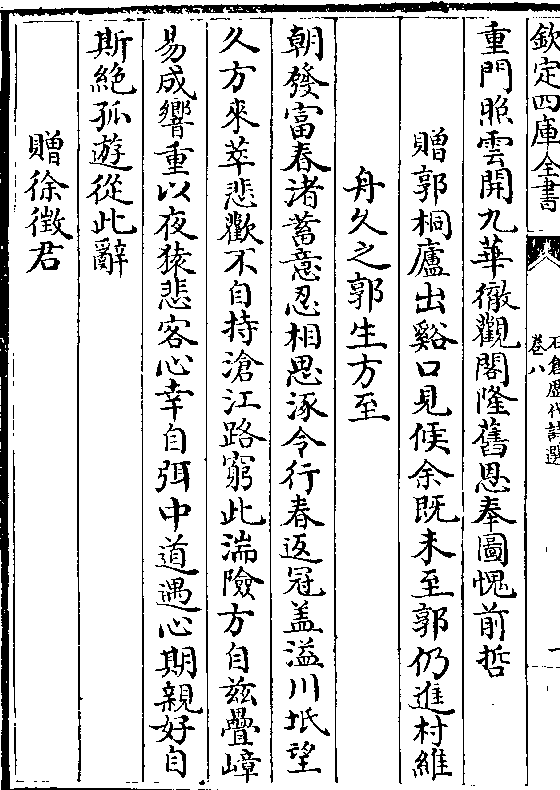 欽定四庫全書
石倉歷代詩選
卷八
重門照雲開九華徹觀閣隆舊恩奉圖愧前哲
贈郭桐廬出谿口見候余既未至郭仍進村維
舟久之郭生方至
朝發富春渚蓄意忍相思涿令行春返冠盖溢川坻望
久方來萃悲歡不自持滄江路窮此湍險方自兹疊嶂
易成響重以夜猿悲客心幸自弭中道遇心期親好自
斯絶孤遊從此辭
贈徐徵君